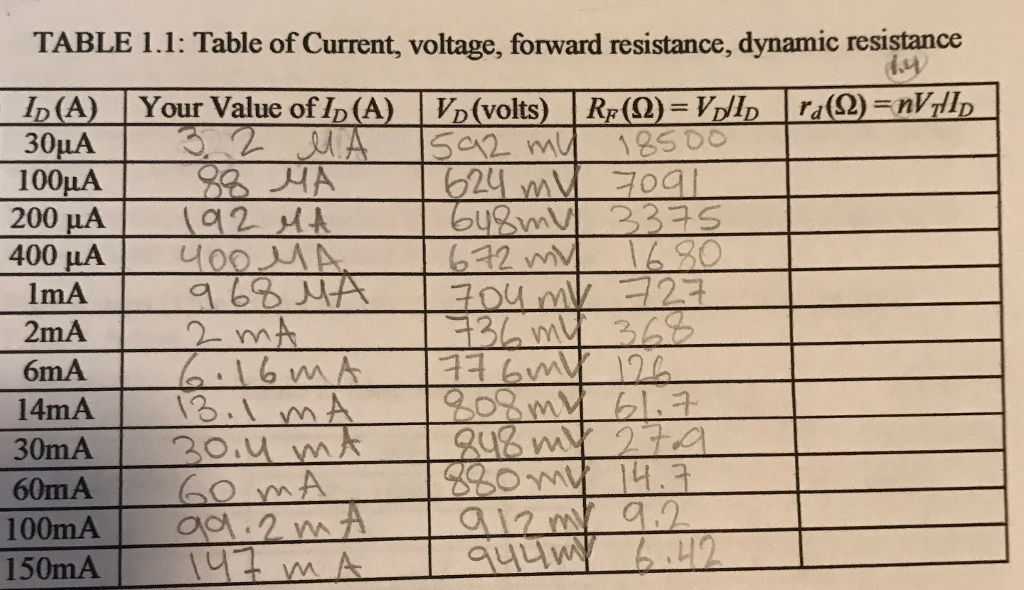 TABLE 1.1: Table of Current, voltage, forward resistance, dynamic resistance
1.4
I_D (A) Your Value of I_D (A) V_D (volts) R_F (Ω) = V_D/I_D r_d (Ω) = nV_T/I_D
30μA 3.2 μA 592 mV 18500
100μA 88 μA 624 mV 7091
200 μA 192 μA 648mV 3375
400 μA 400 μA 672 mV 1680
1mA 968 μA 704 mV 727
2mA 2 mA 736 mV 368
6mA 6.16 mA 776mV 126
14mA 13.1 mA 808mV 61.7
30mA 30.4 mA 848 mV 27.9
60mA 60 mA 880 mV 14.7
100mA 99.2 mA 912 mV 9.2
150mA 147 mA 944mV 6.42